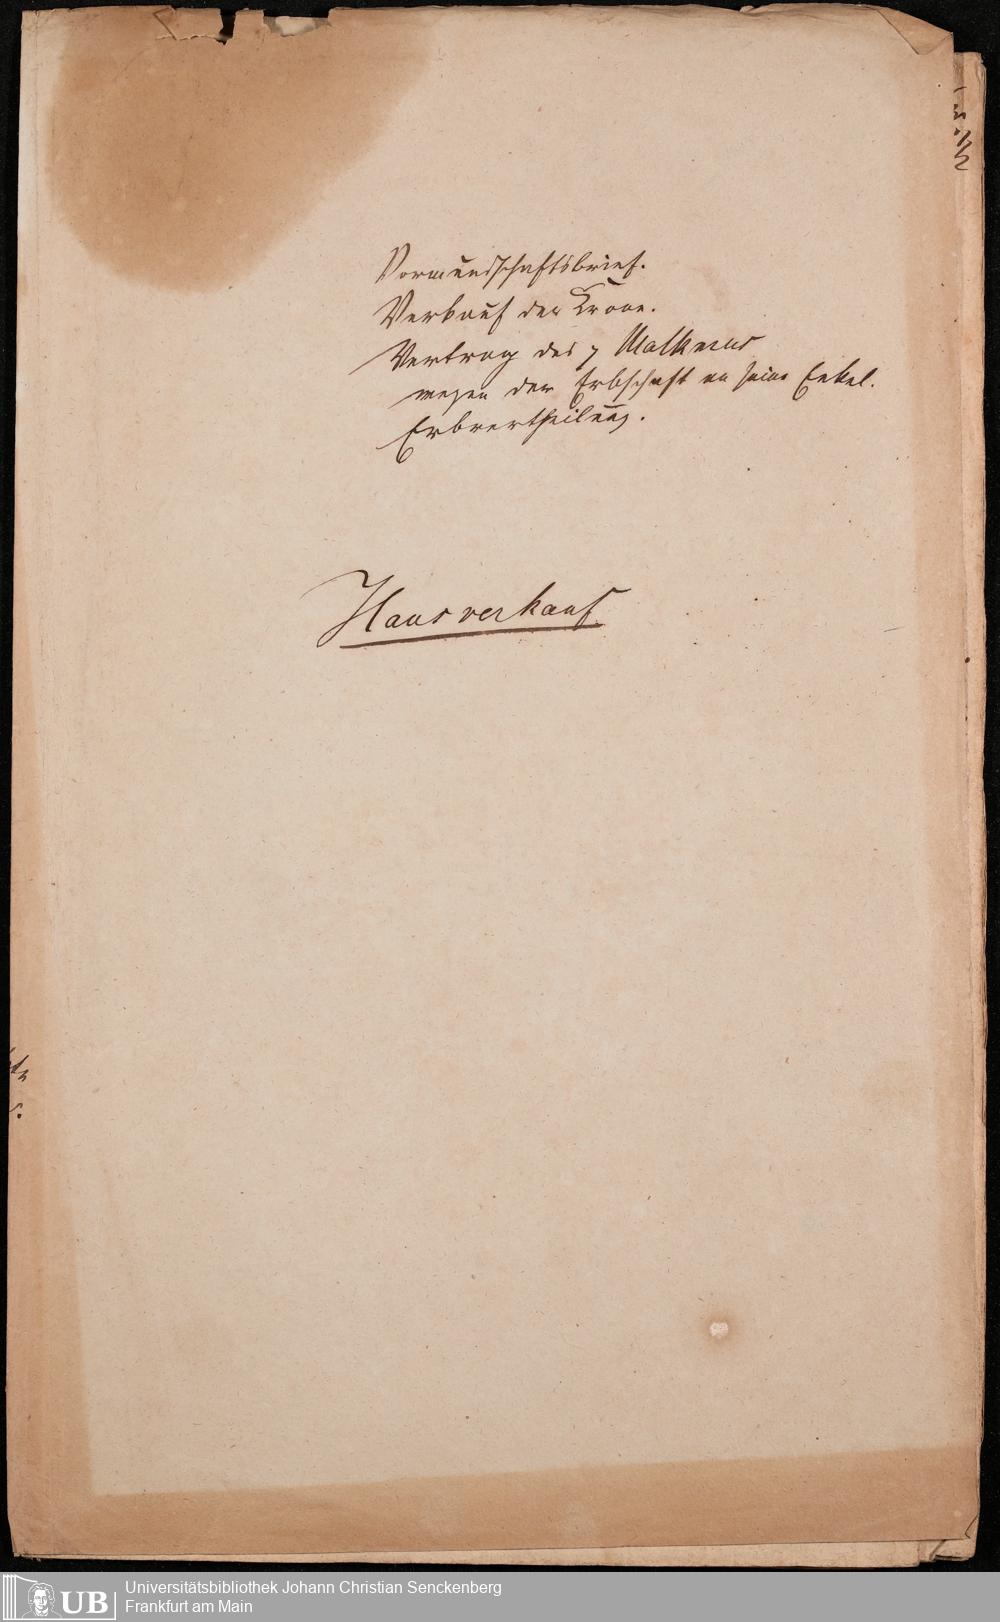 Vormundschaftsbrief.
Verkauf der Krone.
Vertrag des
wegen der Erbschaft an seine Enkel.
Erbvertheilung.
Hausverkauf
Universitätsbibliothek Johann Christian Senckenberg
Frankfurt am Main
UB